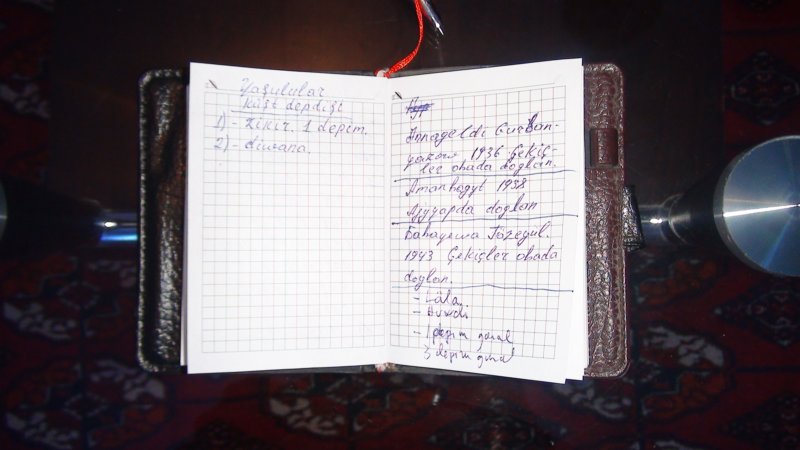 Ýaşulular
küşt depdişi
1) - Zikir. 1 depim.
2) - diwana.
Annageldi Gurban-
1936 Çekiç-
ler obada doglan.
Amanhagyt 1938
Ajyýapda doglan
Babaýewa Täzegül.
1943 Çekişler obada
doglan.
- Läla.
- Huwdi
- 1 depim gazal
3 depim gazal